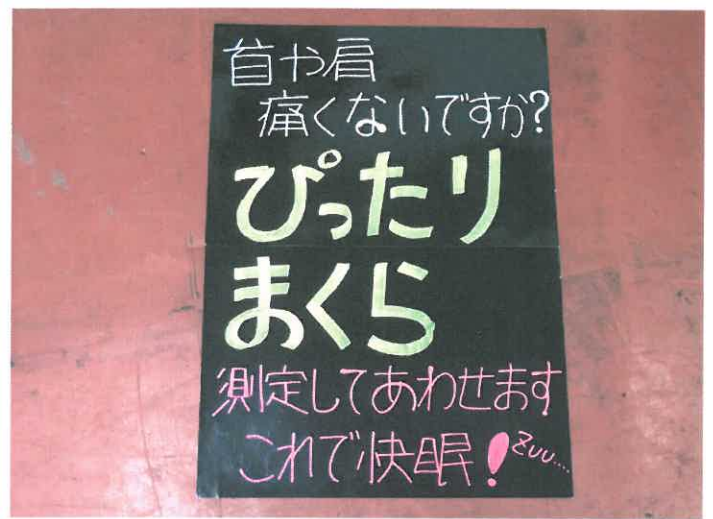 首や肩
痛くないですか?
ぴったり
まくら
測定してあわせます
これで快眠!Zuu....